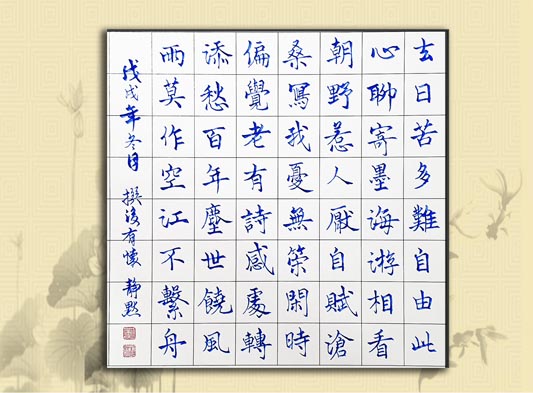 去日苦多難自由此
心聊寄墨海游相看
朝野惹人厭自賦滄
桑寫我憂無策閑時
偏覺老有詩感處轉
添愁百年塵世饒風
雨莫作空江不繫舟
戊戌年冬月 撰後有懷 靜默